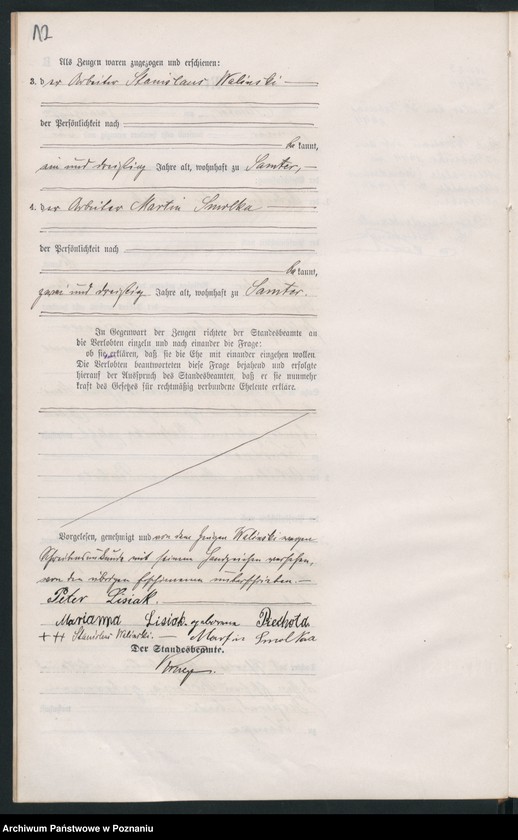 12
Als Zeugen waren zugezogen und erschienen:
3. der Arbeiter Stanislaus Walinski
der Persönlichkeit nach
be kannt,
ein und dreißig Jahre alt, wohnhaft zu Samter,
4. der Arbeiter Martin Smolka
der Persönlichkeit nach
be kannt,
zwei und dreißig Jahre alt, wohnhaft zu Samter.
In Gegenwart der Zeugen richtete der Standesbeamte an
die Verlobten einzeln und nach einander die Frage:
ob sie erklären, daß sie die Ehe mit einander eingehen wollen.
Die Verlobten beantworteten diese Frage bejahend und erfolgte
hierauf der Ausspruch des Standesbeamten, daß er sie nunmehr
kraft des Gesetzes für rechtmäßig verbundene Eheleute erkläre.
Vorgelesen, genehmigt und von dem Zeugen Walinski wegen
Schreibensunkunde mit seinem Handzeichen versehen,
von den übrigen Erschienenen unterschrieben.
Peter Lisiak.
Marianna Lisiak geborene Rechold
+++ Stanislaus Walinski. — Martin Smolka
Der Standesbeamte.
Archiwum Państwowe w Poznaniu